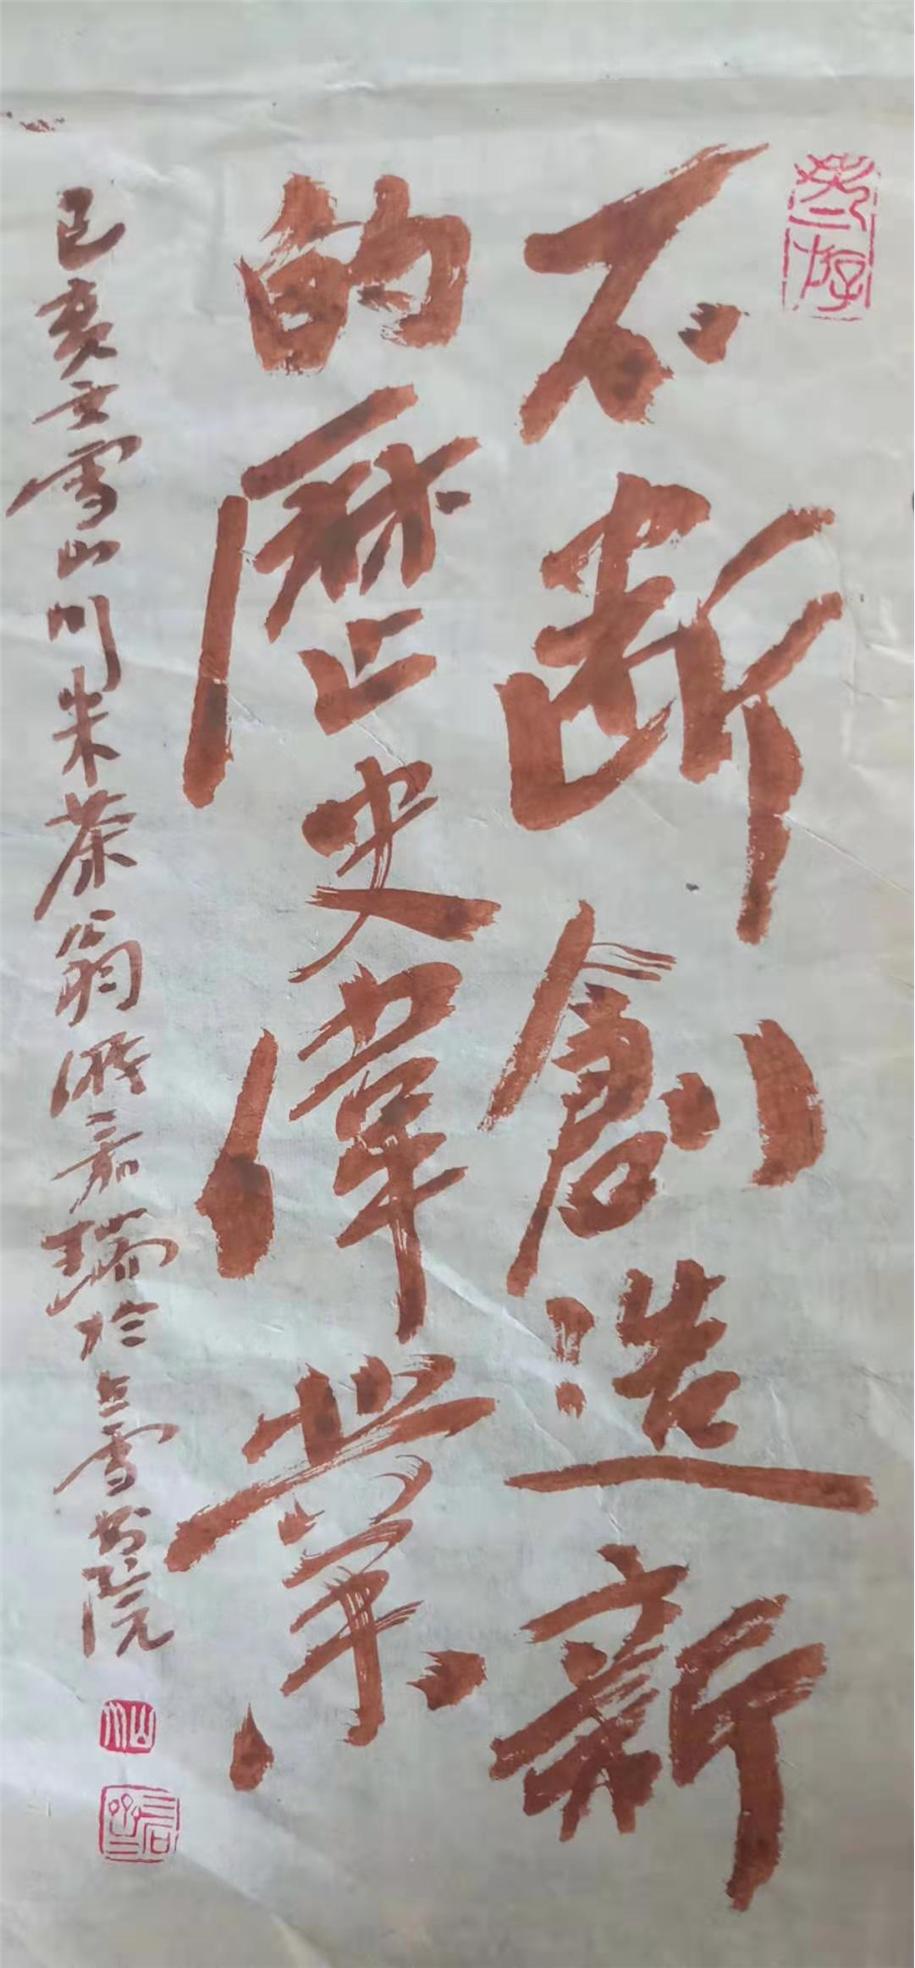 不断創造新
的歷史偉業
己亥 雪山川米茶翁 嘉瑞於 雪書院